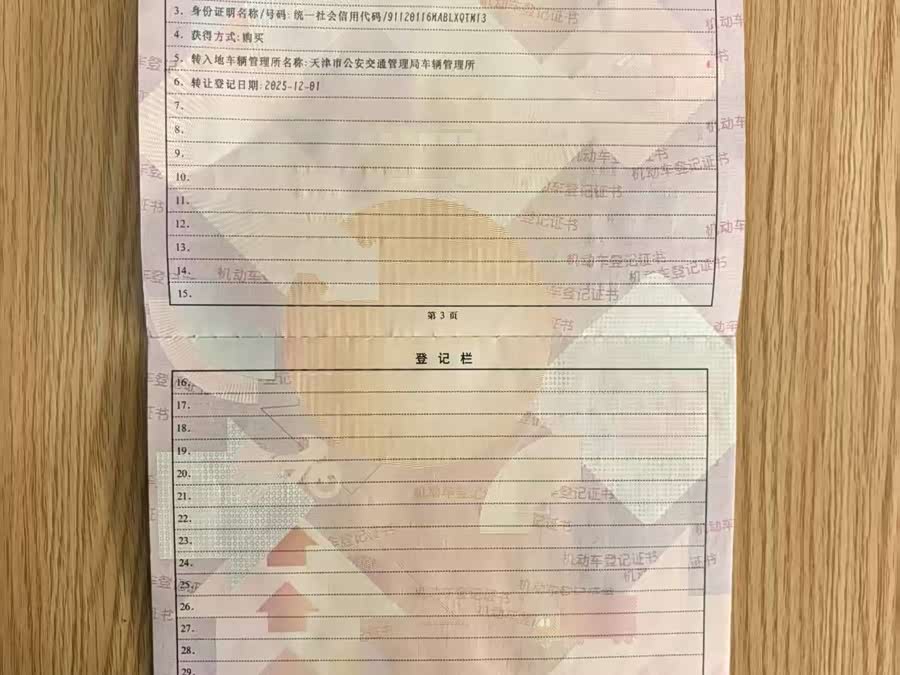 3. 身份证明名称/号码: 统一社会信用代码/91120116MABLXQTM13
4. 获得方式:购买
5. 转入地车辆管理所名称:天津市公安交通管理局车辆管理所
6. 转让登记日期:2025-12-01
7.
8.
9.
10.
11.
12.
13.
14.
15.
第 3 页
登 记 栏
16.
17.
18.
19.
20.
21.
22.
23.
24.
25.
26.
27.
28.
29.
机动车登记证书